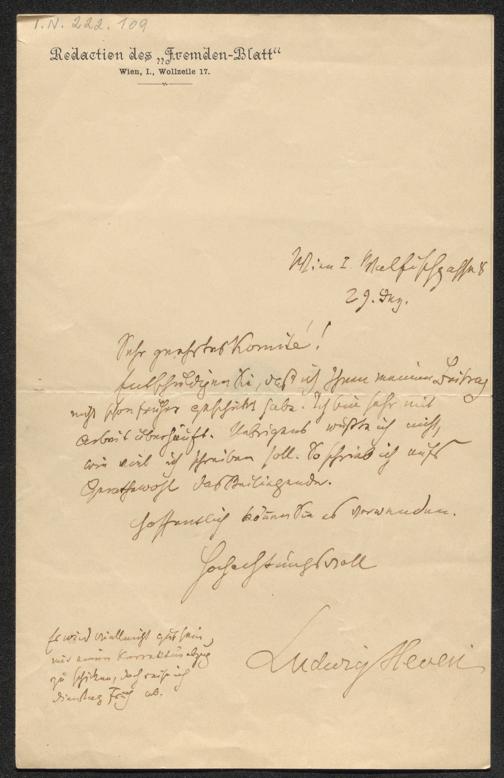 I.N. 222.109
Redaction des „Fremden-Blatt“
Wien, I., Wollzeile 17.
Wien I. Walfischgasse 8
29. Dez.
Sehr geehrtes Komité!
Entschuldigen Sie, daß ich Ihnen meinen Beitrag
nicht schon früher geschickt habe. Ich bin sehr mit
Arbeit überhäuft. Uebrigens wußte ich nicht,
wie viel ich schreiben soll. So schrieb ich aufs
Gerathewohl das Beiliegende.
Hoffentlich können Sie es verwenden.
Hochachtungsvoll
Ludwig Hevesi
Es wird vielleicht gut sein,
mir einen Korrekturabzug
zu schicken, doch reise ich
Dienstag Früh ab.